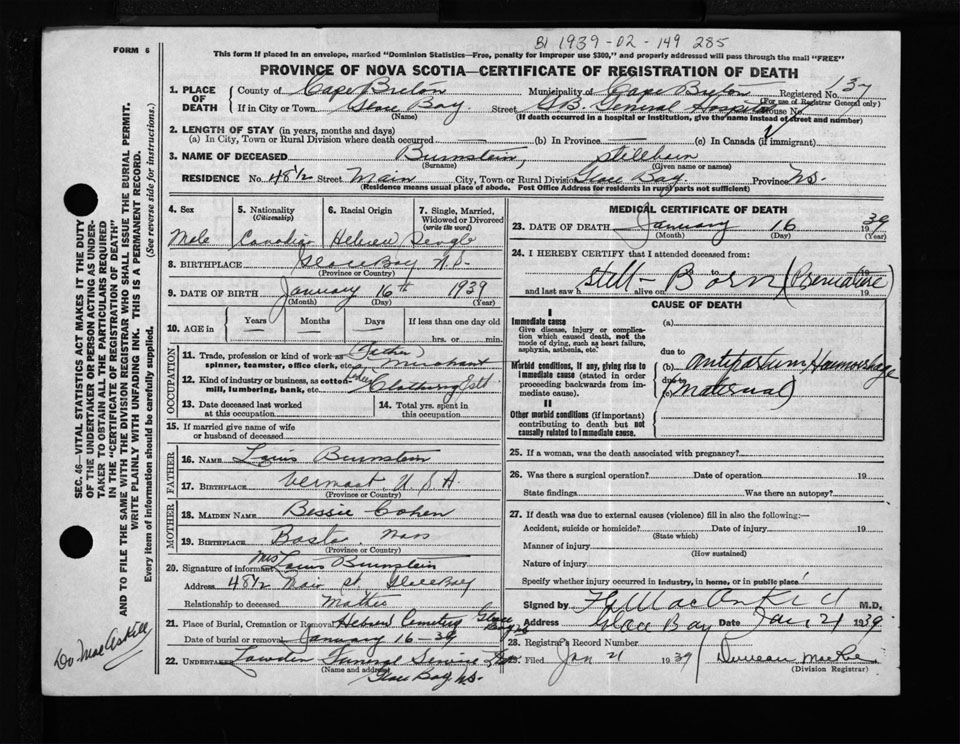 B1 1939-02-149 285
FORM 6
This form if placed in an envelope, marked "Dominion Statistics—Free, penalty for improper use $300," and properly addressed will pass through the mail "FREE"
PROVINCE OF NOVA SCOTIA—CERTIFICATE OF REGISTRATION OF DEATH
1. PLACE OF DEATH County of Cape Breton Municipality of Cape Breton Registered No. 137
(For use of Registrar General only)
If in City or Town Glace Bay Street G.B. General Hospital House No.
(Name) (If death occurred in a hospital or institution, give the name instead of street and number)
2. LENGTH OF STAY (in years, months and days)
(a) In City, Town or Rural Division where death occurred (b) In Province (c) In Canada (if immigrant)
3. NAME OF DECEASED Burnstein, stillborn
(Surname) (Given name or names)
RESIDENCE No. 48½ Street Main City, Town or Rural Division Glace Bay Province N.S.
(Residence means usual place of abode. Post Office Address for residents in rural parts not sufficient)
4. Sex 5. Nationality (Citizenship) 6. Racial Origin 7. Single, Married, Widowed or Divorced (write the word)
Male Canadian Hebrew Single
8. BIRTHPLACE Glace Bay N.S.
(Province or Country)
9. DATE OF BIRTH January 16th 1939
(Month) (Day) (Year)
10. AGE in Years Months Days If less than one day old
hrs. or min.
OCCUPATION
11. Trade, profession or kind of work as spinner, teamster, office clerk, etc. (Father) Merchant
12. Kind of industry or business, as cotton-mill, lumbering, bank, etc. Clothing Est.
13. Date deceased last worked at this occupation 14. Total yrs. spent in this occupation
15. If married give name of wife or husband of deceased
FATHER
16. NAME Louis Burnstein
17. BIRTHPLACE Vermont U.S.A.
(Province or Country)
MOTHER
18. MAIDEN NAME Bessie Cohen
19. BIRTHPLACE Boston Mass
(Province or Country)
20. Signature of informant Mrs Louis Burnstein
Address 48½ Main St. Glace Bay
Relationship to deceased Mother
21. Place of Burial, Cremation or Removal Hebrew Cemetery Glace Bay
Date of burial or removal January 16-39
22. UNDERTAKER Funeral Service
(Name and address) Glace Bay N.S.
MEDICAL CERTIFICATE OF DEATH
23. DATE OF DEATH January 16 1939
(Month) (Day) (Year)
24. I HEREBY CERTIFY that I attended deceased from
19 to 19
and last saw h alive on 19
Still-Born (Premature)
CAUSE OF DEATH
I
Immediate cause (a)
Give disease, injury or complication which caused death, not the mode of dying, such as heart failure, asphyxia, asthenia, etc.
due to
Morbid conditions, if any, giving rise to immediate cause (stated in order proceeding backwards from immediate cause) (b) Antepartum Haemorrhage
due to
(c) (Maternal)
II
Other morbid conditions (if important) contributing to death but not causally related to immediate cause.
25. If a woman, was the death associated with pregnancy?
26. Was there a surgical operation? Date of operation 19
State findings Was there an autopsy?
27. If death was due to external causes (violence) fill in also the following:—
Accident, suicide or homicide? Date of injury 19
(State which)
Manner of injury
(How sustained)
Nature of injury
Specify whether injury occurred in industry, in home, or in public place
Signed by M.D.
Address Glace Bay Date Jan 21 1939
28. Registrar's Record Number
29. Filed Jan 21 1939 Duncan MacRae
(Division Registrar)
SEC. 46—VITAL STATISTICS ACT MAKES IT THE DUTY
OF THE UNDERTAKER OR PERSON ACTING AS UNDERTAKER TO OBTAIN ALL THE PARTICULARS REQUIRED
IN THE "CERTIFICATE OF REGISTRATION OF DEATH"
AND TO FILE THE SAME WITH THE DIVISION REGISTRAR WHO SHALL ISSUE THE BURIAL PERMIT.
WRITE PLAINLY WITH UNFADING INK. THIS IS A PERMANENT RECORD.
Every item of information should be carefully supplied. (See reverse side for instructions.)
Dr. MacAskill